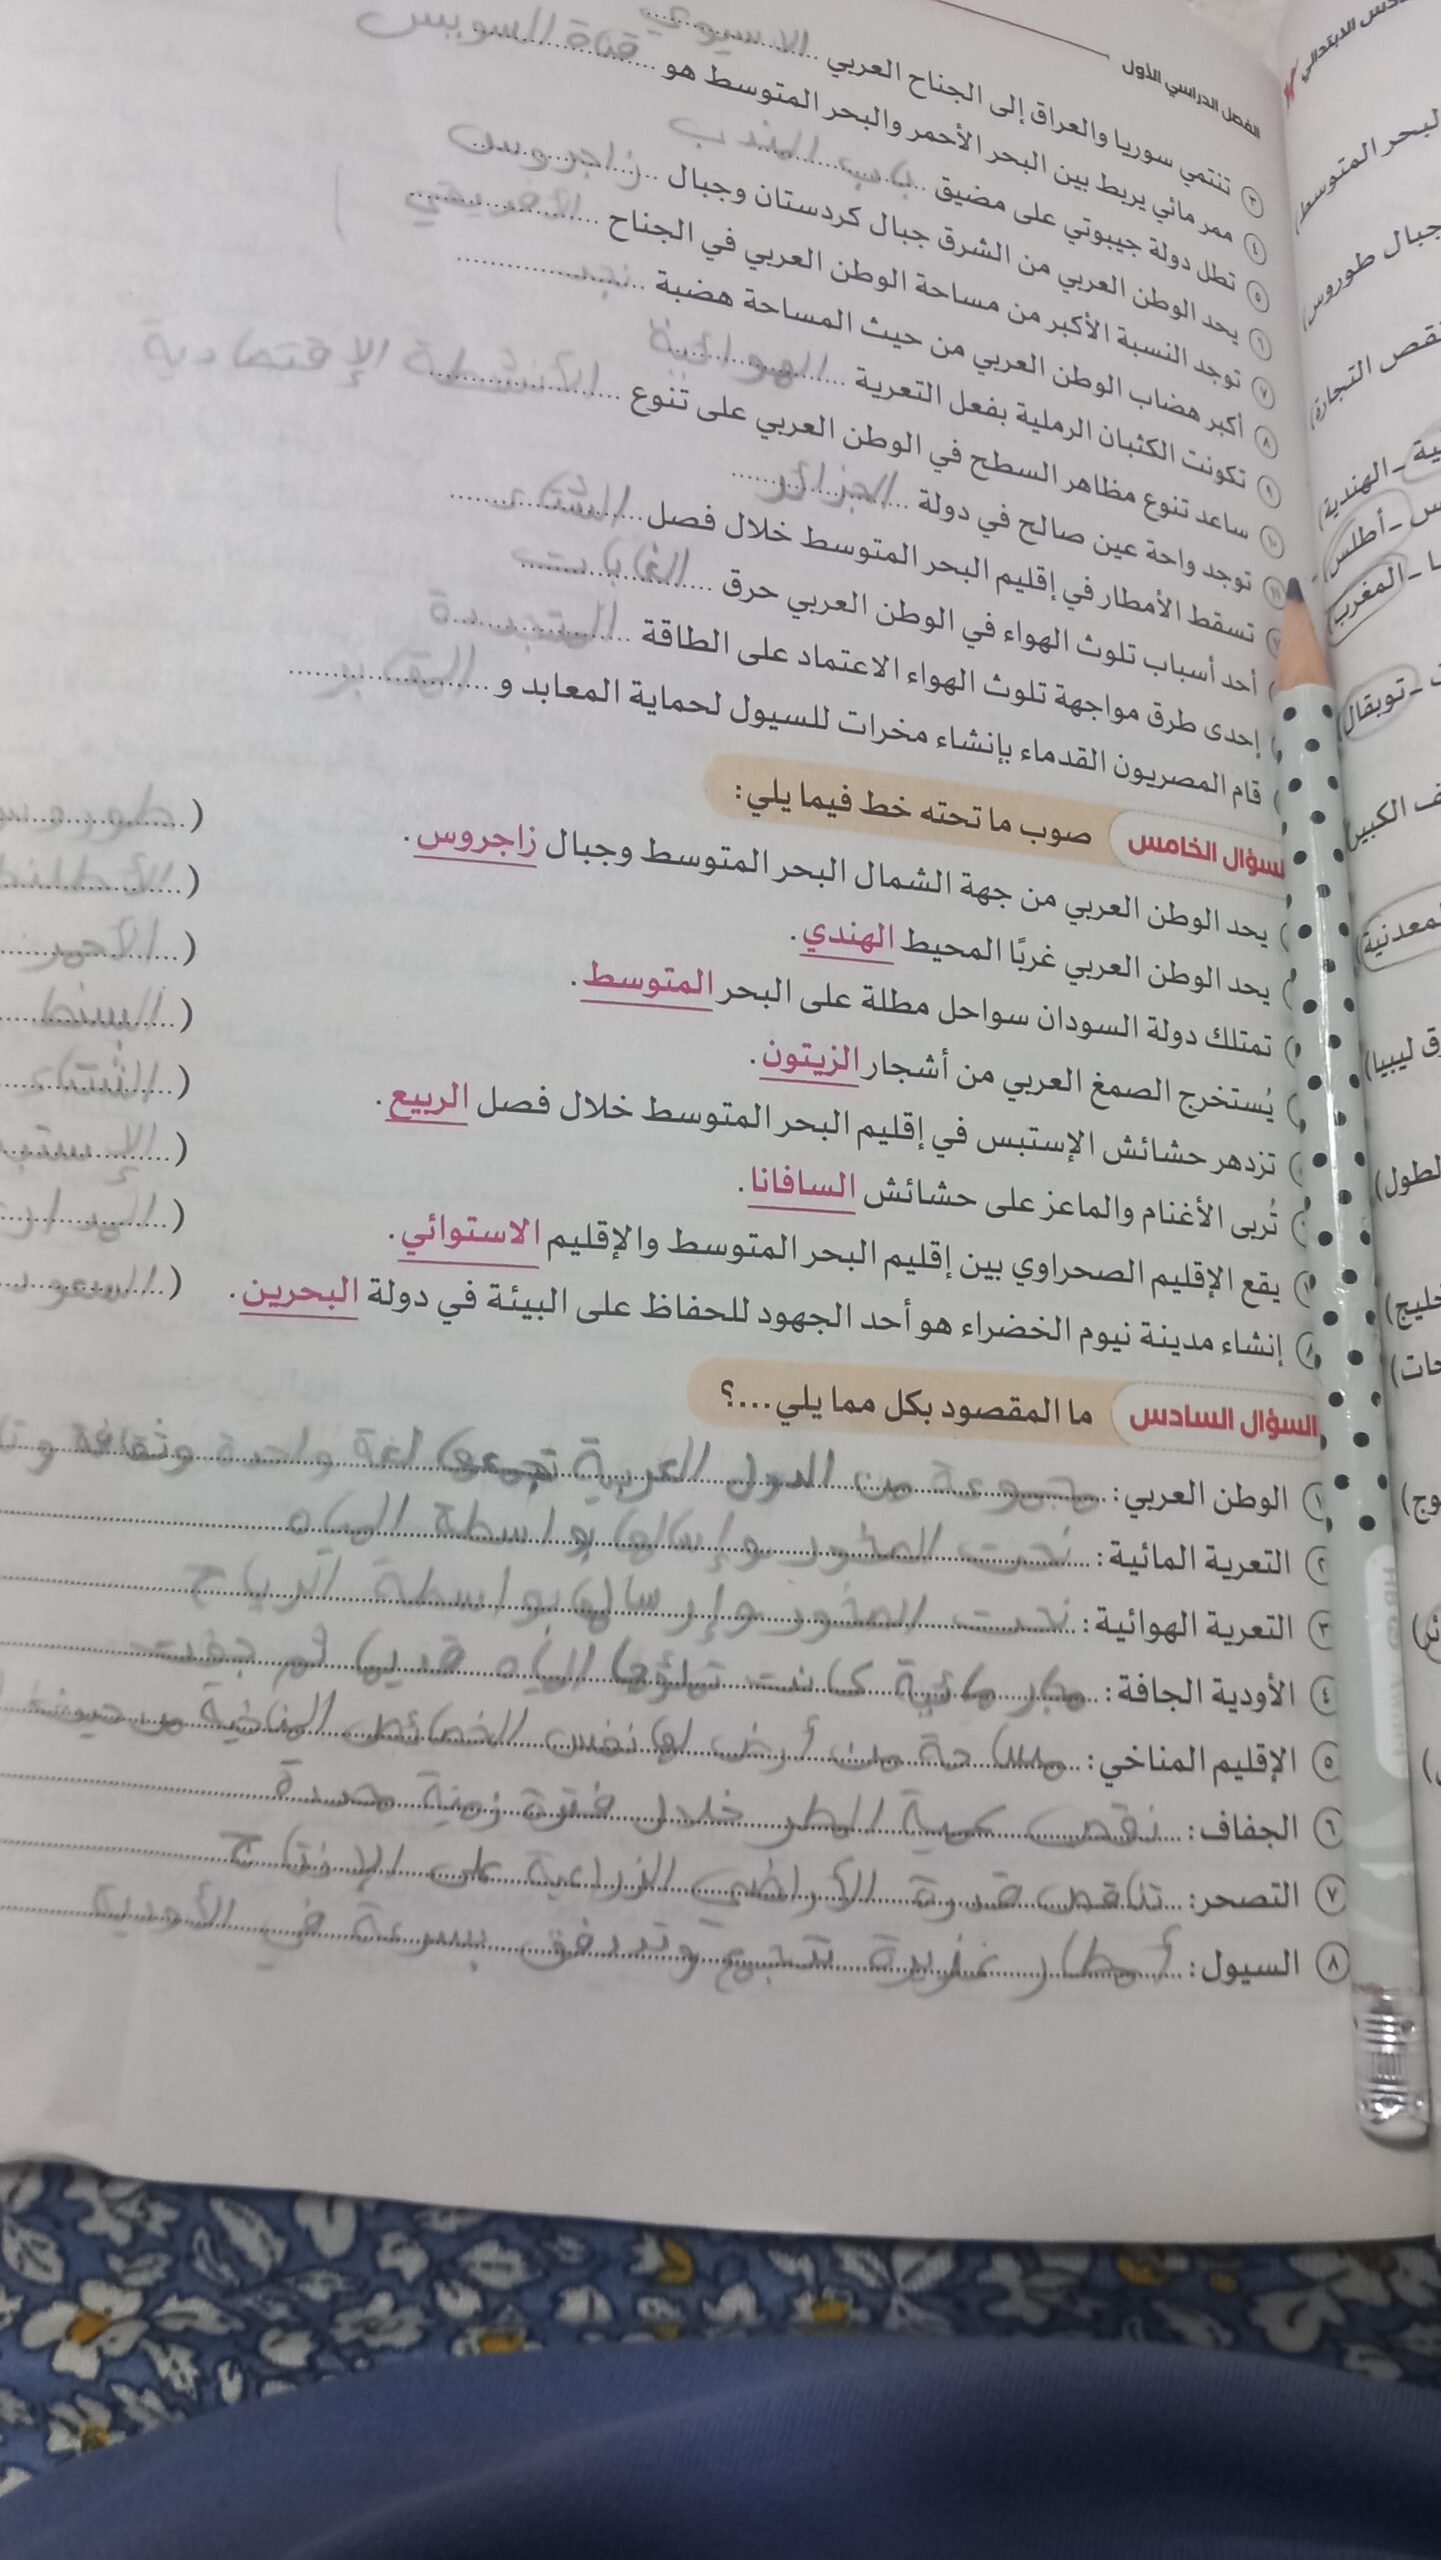 الفصل الدراسي الأول
٣ تنتمي سوريا والعراق إلى الجناح العربي الاسيوي
٤ ممر مائي يربط بين البحر الأحمر والبحر المتوسط هو قناة السويس
٥ تطل دولة جيبوتي على مضيق باب المندب
٦ يحد الوطن العربي من الشرق جبال كردستان وجبال زاجروس
٧ توجد النسبة الأكبر من مساحة الوطن العربي في الجناح الأفريقي
٨ أكبر هضاب الوطن العربي من حيث المساحة هضبة نجد
٩ تكونت الكثبان الرملية بفعل التعرية الهوائية
١٠ ساعد تنوع مظاهر السطح في الوطن العربي على تنوع الأنشطة الإقتصادية
١١ توجد واحة عين صالح في دولة الجزائر
تسقط الأمطار في إقليم البحر المتوسط خلال فصل الشتاء
أحد أسباب تلوث الهواء في الوطن العربي حرق الغابات
إحدى طرق مواجهة تلوث الهواء الاعتماد على الطاقة المتجددة
قام المصريون القدماء بإنشاء مخرات للسيول لحماية المعابد و المقابر
السؤال الخامس صوب ما تحته خط فيما يلي:
يحد الوطن العربي من جهة الشمال البحر المتوسط وجبال زاجروس. (
يحد الوطن العربي غربًا المحيط الهندي. (
تمتلك دولة السودان سواحل مطلة على البحر المتوسط. ( الأحمر
يُستخرج الصمغ العربي من أشجار الزيتون. ( السنط
تزدهر حشائش الإستبس في إقليم البحر المتوسط خلال فصل الربيع. ( الشتاء
تُربى الأغنام والماعز على حشائش السافانا. (
يقع الإقليم الصحراوي بين إقليم البحر المتوسط والإقليم الاستوائي. (
٨ إنشاء مدينة نيوم الخضراء هو أحد الجهود للحفاظ على البيئة في دولة البحرين. (
السؤال السادس ما المقصود بكل مما يلي...؟
١ الوطن العربي: مجموعة من الدول العربية تجمعها لغة واحدة وثقافة
٢ التعرية المائية: نحت الصخور وإرسالها بواسطة المياه
٣ التعرية الهوائية: نحت الصخور وإرسالها بواسطة الرياح
٤ الأودية الجافة: مجار مائية كانت تملؤها المياه قديما ثم جفت
٥ الإقليم المناخي: مساحة من أرض لها نفس الخصائص المناخية من حيث
٦ الجفاف: نقص كمية المطر خلال فترة زمنية محددة
٧ التصحر: تناقص قدرة الأراضي الزراعية على الإنتاج
٨ السيول: أمطار غزيرة تتجمع وتتدفق بسرعة في الأودية
البحر المتوسط)
جبال طوروس)
التجارة)
- الهندية)
- أطلس)
- المغرب)
- توبقال)
الكبير)
المعدنية)
ليبيا)